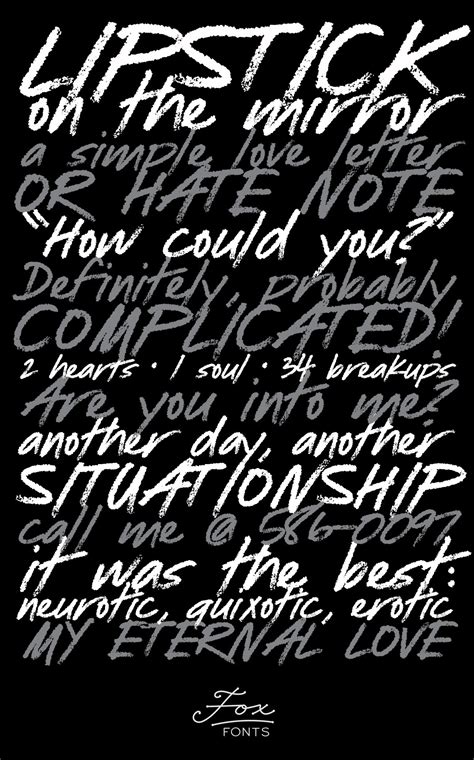 LIPSTICK
on the mirror
a simple love letter
OR HATE NOTE
"How could you?"
Definitely, probably
COMPLICATED!
2 hearts · 1 soul · 34 breakups
Are you into me?
another day, another
SITUATIONSHIP
call me @ 586-0097
it was the best:
neurotic, quixotic, erotic
MY ETERNAL LOVE
Fox
FONTS